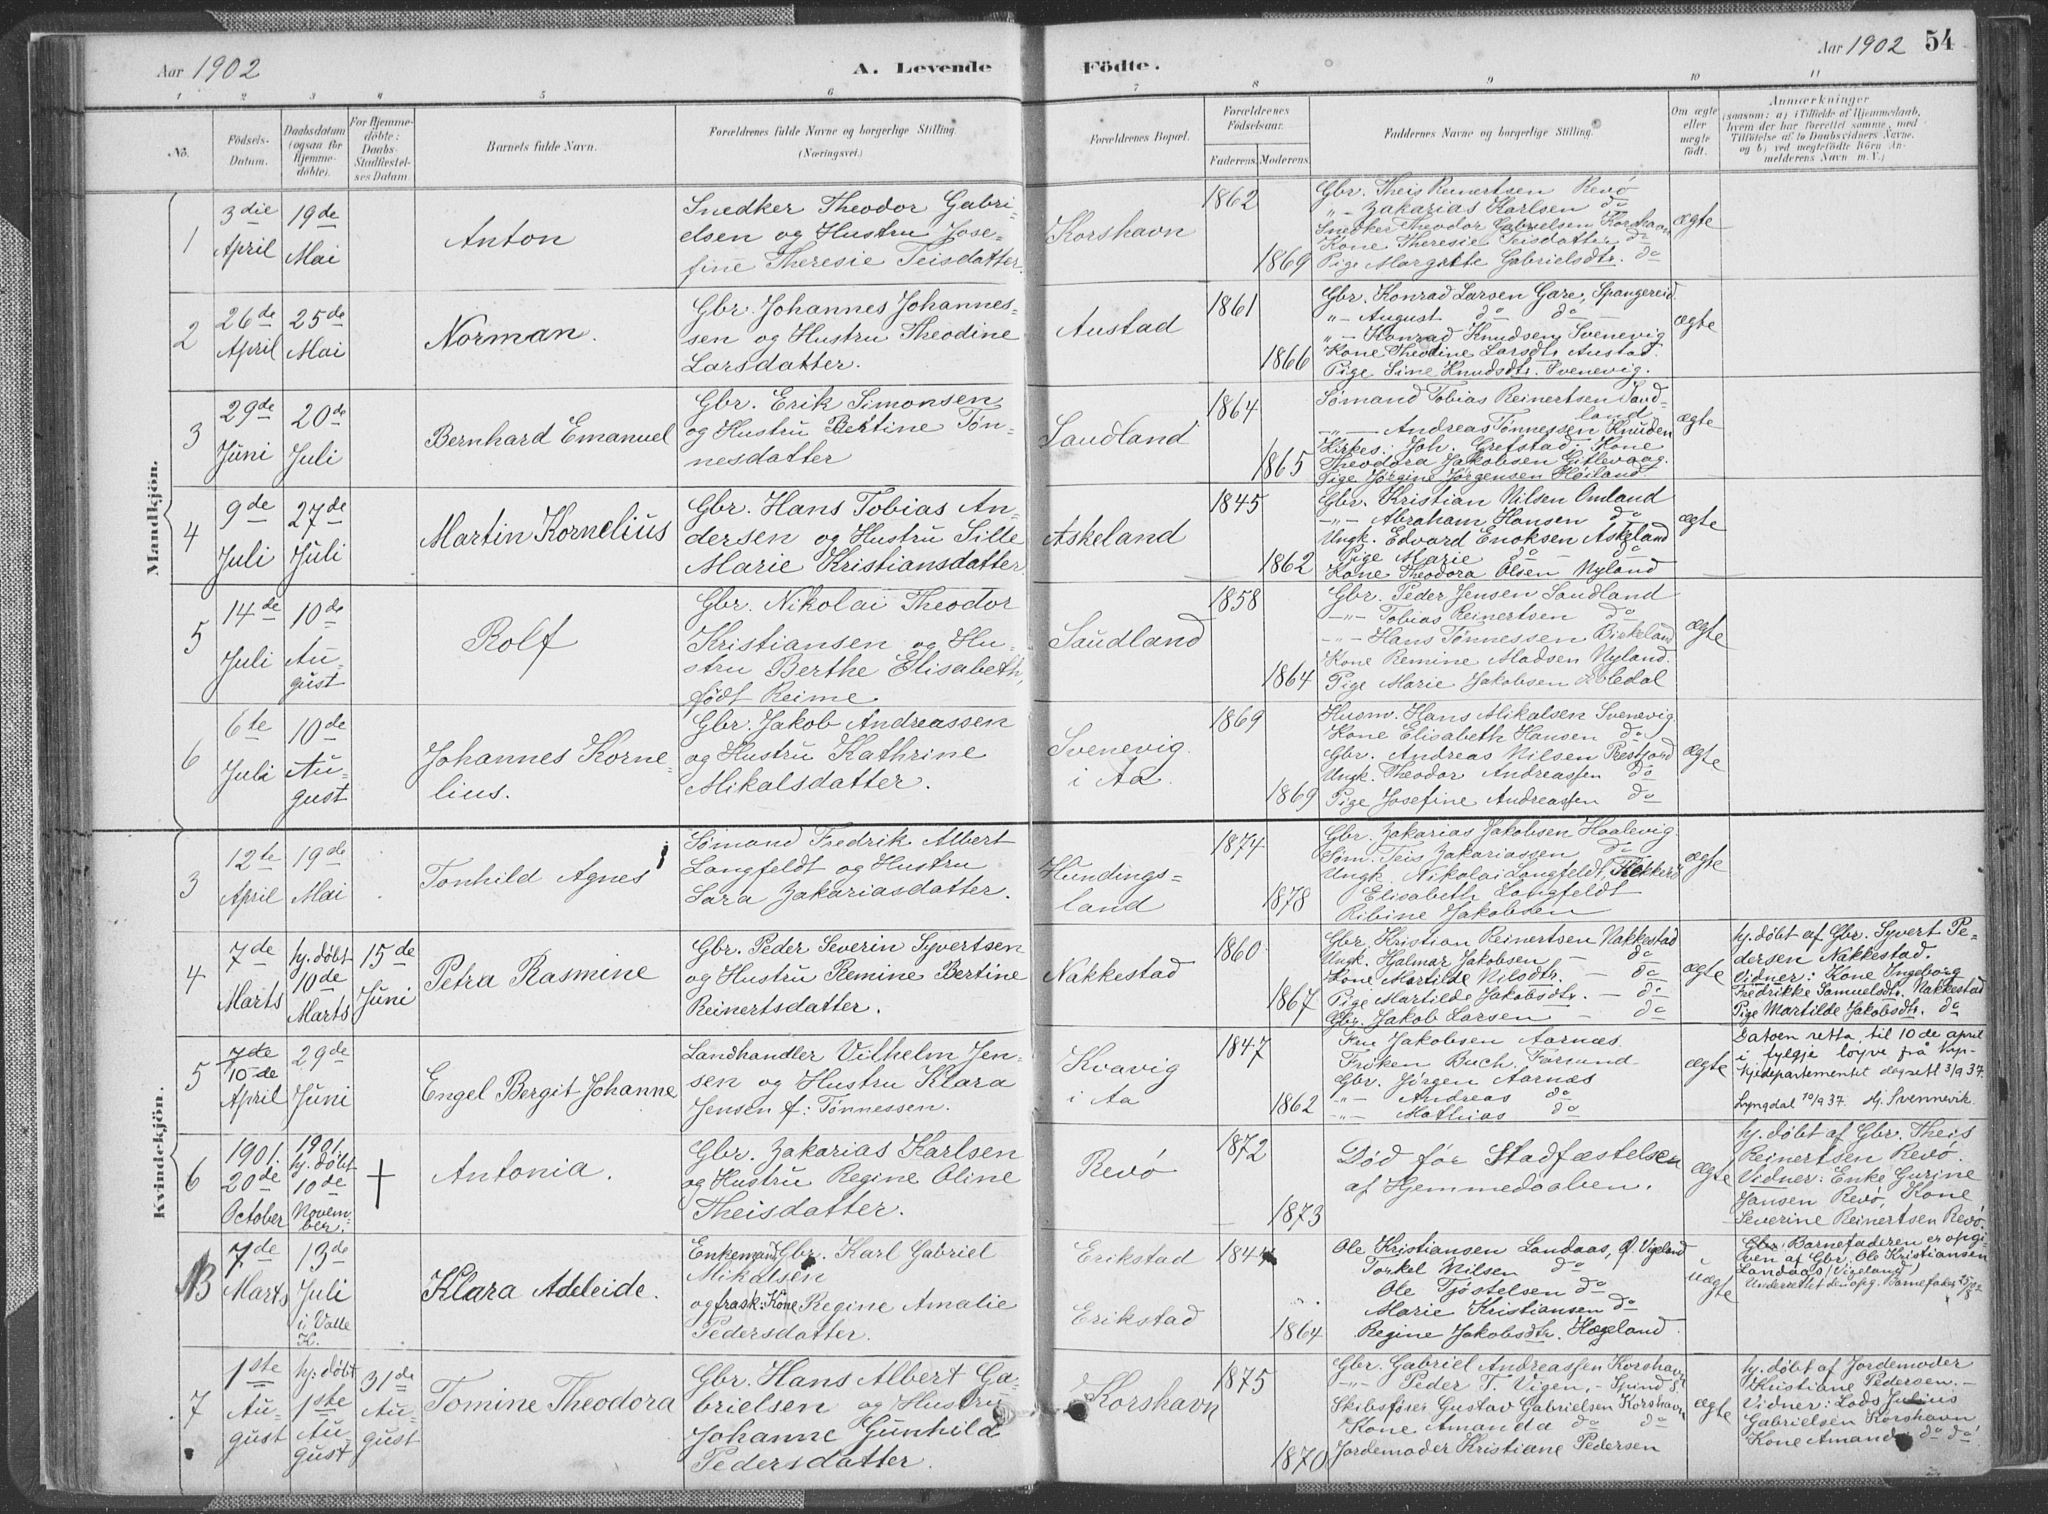 Aar 1902
A. Levende Födte.
Aar 1902 54
1 2 3 4 5 6 7 8 9 10 11
No.
Födsels-Datum.
Daabsdatum (ogsaa for Hjemmedöbte).
For Hjemmedöbte: Daabs-Stadfæstelses Datum.
Barnets fulde Navn.
Forældrenes fulde Navne og borgerlige Stilling.
(Næringsvei.)
Forældrenes Bopæl.
Forældrenes Födselsaar.
Faderens. Moderens.
Faddernes Navne og borgerlige Stilling.
Om ægte eller uægte födt.
Anmærkninger
(saasom: a) i Tilfælde af Hjemmedaab, hvem der har forrettet samme, med Tilföielse af to Daabsvidners Navne, og b) ved uægtefödte Börn Anmelderens Navn m. V.)
Mandkjön.
1
3die April
19de Mai
Anton
Snedker Theodor Gabri-
elsen og Hustru Jose-
fine Theresie Teisdatter.
Korshavn
1862
1869
Gbr. Theis Reinertsen Revö
"- Zakarias Karlsen do
Snedker Theodor Gabrielsen Korshavn
Kone Theresie Teisdatter do
Pige Margitte Gabrielsdtr. do
ægte
2
26de April
25de Mai
Norman.
Gbr. Johannes Johannes-
sen og Hustru Theodine
Larsdatter.
Austad
1861
1866
Gbr. Konrad Larsen Gare, Spangereid
"- August do do
"- Konrad Knudsen Svenevig
Kone Theodine Larsdtr. Austad.
Pige Sine Knudsdtr. Svenevig.
ægte
3
29de Juni
20de Juli
Bernhard Emanuel
Gbr. Erik Simonsen
og Hustru Bertine Tön-
nesdatter
Saudland
1864
1865
Sömand Tobias Reinertsen Saud-
land
"- Andreas Tönnessen Knuden
Kirkes: Joh. Grefstad. Kone
Theodora Jakobsen Gitlevaag.
Pige Jörgine Jörgensen Höiland.
ægte
4
9de Juli
27de Juli
Martin Kornelius
Gbr. Hans Tobias An-
dersen og Hustru Sille
Marie Kristiansdatter
Askeland
1845
1862
Gbr. Kristian Nilsen Omland
-"- Abraham Hansen do
Ungk. Edvard Enoksen Askeland
Pige Marie do - do
Kone Theodora Olsen Nyland
ægte
5
14de Juli
10de August
Rolf
Gbr. Nikolai Theodor
Kristiansen og Hu-
stru Berthe Elisabeth,
födt Reime
Saudland
1858
1864
Gbr. Peder Jensen Saudland
-"- Tobias Reinertsen do
-"- Hans Tönnessen Birkeland
Kone Remine Madsen Nyland.
Pige Marie Jakobsen
ægte
6
6te Juli
10de August
Johannes Korne-
lius.
Gbr. Jakob Andreassen
og Hustru Kathrine
Mikalsdatter.
Svenevig
i Aa
1869
1869
Husm. Hans Mikalsen Svenevig
Kone Elisabeth Hansen do
Gbr. Andreas Nilsen Restfjord
Ungk. Theodor Andreassen do
Pige Josefine Andreassen do
ægte
Kvindekjön.
3
12te April
19de Mai
Tonhild Agnes
Sömand Fredrik Albert
Langfeldt og Hustru
Sara Zakariasdatter.
Hundings-
land
1874
1878
Gbr. Zakarias Jakobsen Haalevig
Söm. Teis Zakariassen do
Ungk. Nikolai Langfeldt,
Elisabeth Langfeldt
Ribine Jakobsen
ægte
4
7de Marts
hj. döbt 10de Marts
15de Juni
Petra Rasmine
Gbr. Peder Severin Syvertsen
og Hustru Remine Bertine
Reinertsdatter.
Nakkestad
1860
1867
Gbr. Kristian Reinertsen Nakkestad
Ungk. Halmar Jakobsen - do
Kone Martilde Nilsdtr. - do
Pige Martilde Jakobsdtr. - do
Gbr. Jakob Larsen - do
ægte
hj. döbt af Gbr. Syvert Pe-
dersen Nakkestad.
Vidner: Kone Ingeborg
Fredrikke Samuelsdtr. Nakkestad
Pige Martilde Jakobsdtr. do
5
7de
10de April
29de Juni
Engel Bergit Johanne
Landhandler Vilhelm Jen-
sen og Hustru Klara
Jensen f: Tönnessen.
Kvavig
i Aa
1847
1862
Fru Jakobsen Aarnæs.
Fröken Buch, Farsund
Gbr. Jörgen Aarnæs
"- Andreas do
"- Mathias do
ægte
Datoen retta til 10de april
i fylgje löyve frå Kyr-
kjedepartementet dagsett 3/9 37.
Lyngdal 10/9 37. Hj. Svennevik.
6
1901. 20de October
1901. hj. döbt 10de November.
+
Antonia.
Gbr. Zakarias Karlsen
og Hustru Regine Oline
Theisdatter.
Revö
1872
1873
Död för Stadfæstelsen
af Hjemmedaaben.
ægte
hj. döbt af Gbr. Theis
Reinertsen Revö.
Vidner: Enke Gurine
Jansen Revö, Kone
Severine Reinertsen Revö.
7de Marts
13de Juli i Valle K.
Klara Adeleide.
Enkemand Gbr. Karl Gabriel
Mikalsen
og frask: Kone Regine Amalie
Pedersdatter.
Erikstad
Erikstad
1864
Ole Kristiansen Landaas, Ö. Vigeland
Torkel Nilsen do
Ole Tjöstelsen do
Marie Kristiansen do
Regine Jakobsdtr. Hægeland.
uægte
Gbr. Barnefaderen er opgi-
ven af Gbr. Ole Kristiansen
Landaas (Vigeland)
Underrettet den opg. Barnefader
7
1ste August
hj. döbt 1ste August
31de August
Tomine Theodora
Gbr. Hans Albert Ga-
brielsen og Hustru
Johanne Gunhild
Pedersdatter.
Korshavn
1875
1870
Gbr. Gabriel Andreassen Korshavn
-"- Peder T. Vigen, - Spind
Skibsförer Gustav Gabrielsen Korshavn
Kone Amanda do do
Jordemoder Kristiane Pedersen
ægte
hj. döbt af Jordemoder
Kristiane Pedersen.-
Vidner: Lods Julius
Gabrielsen Korshavn
Kone Amanda do do